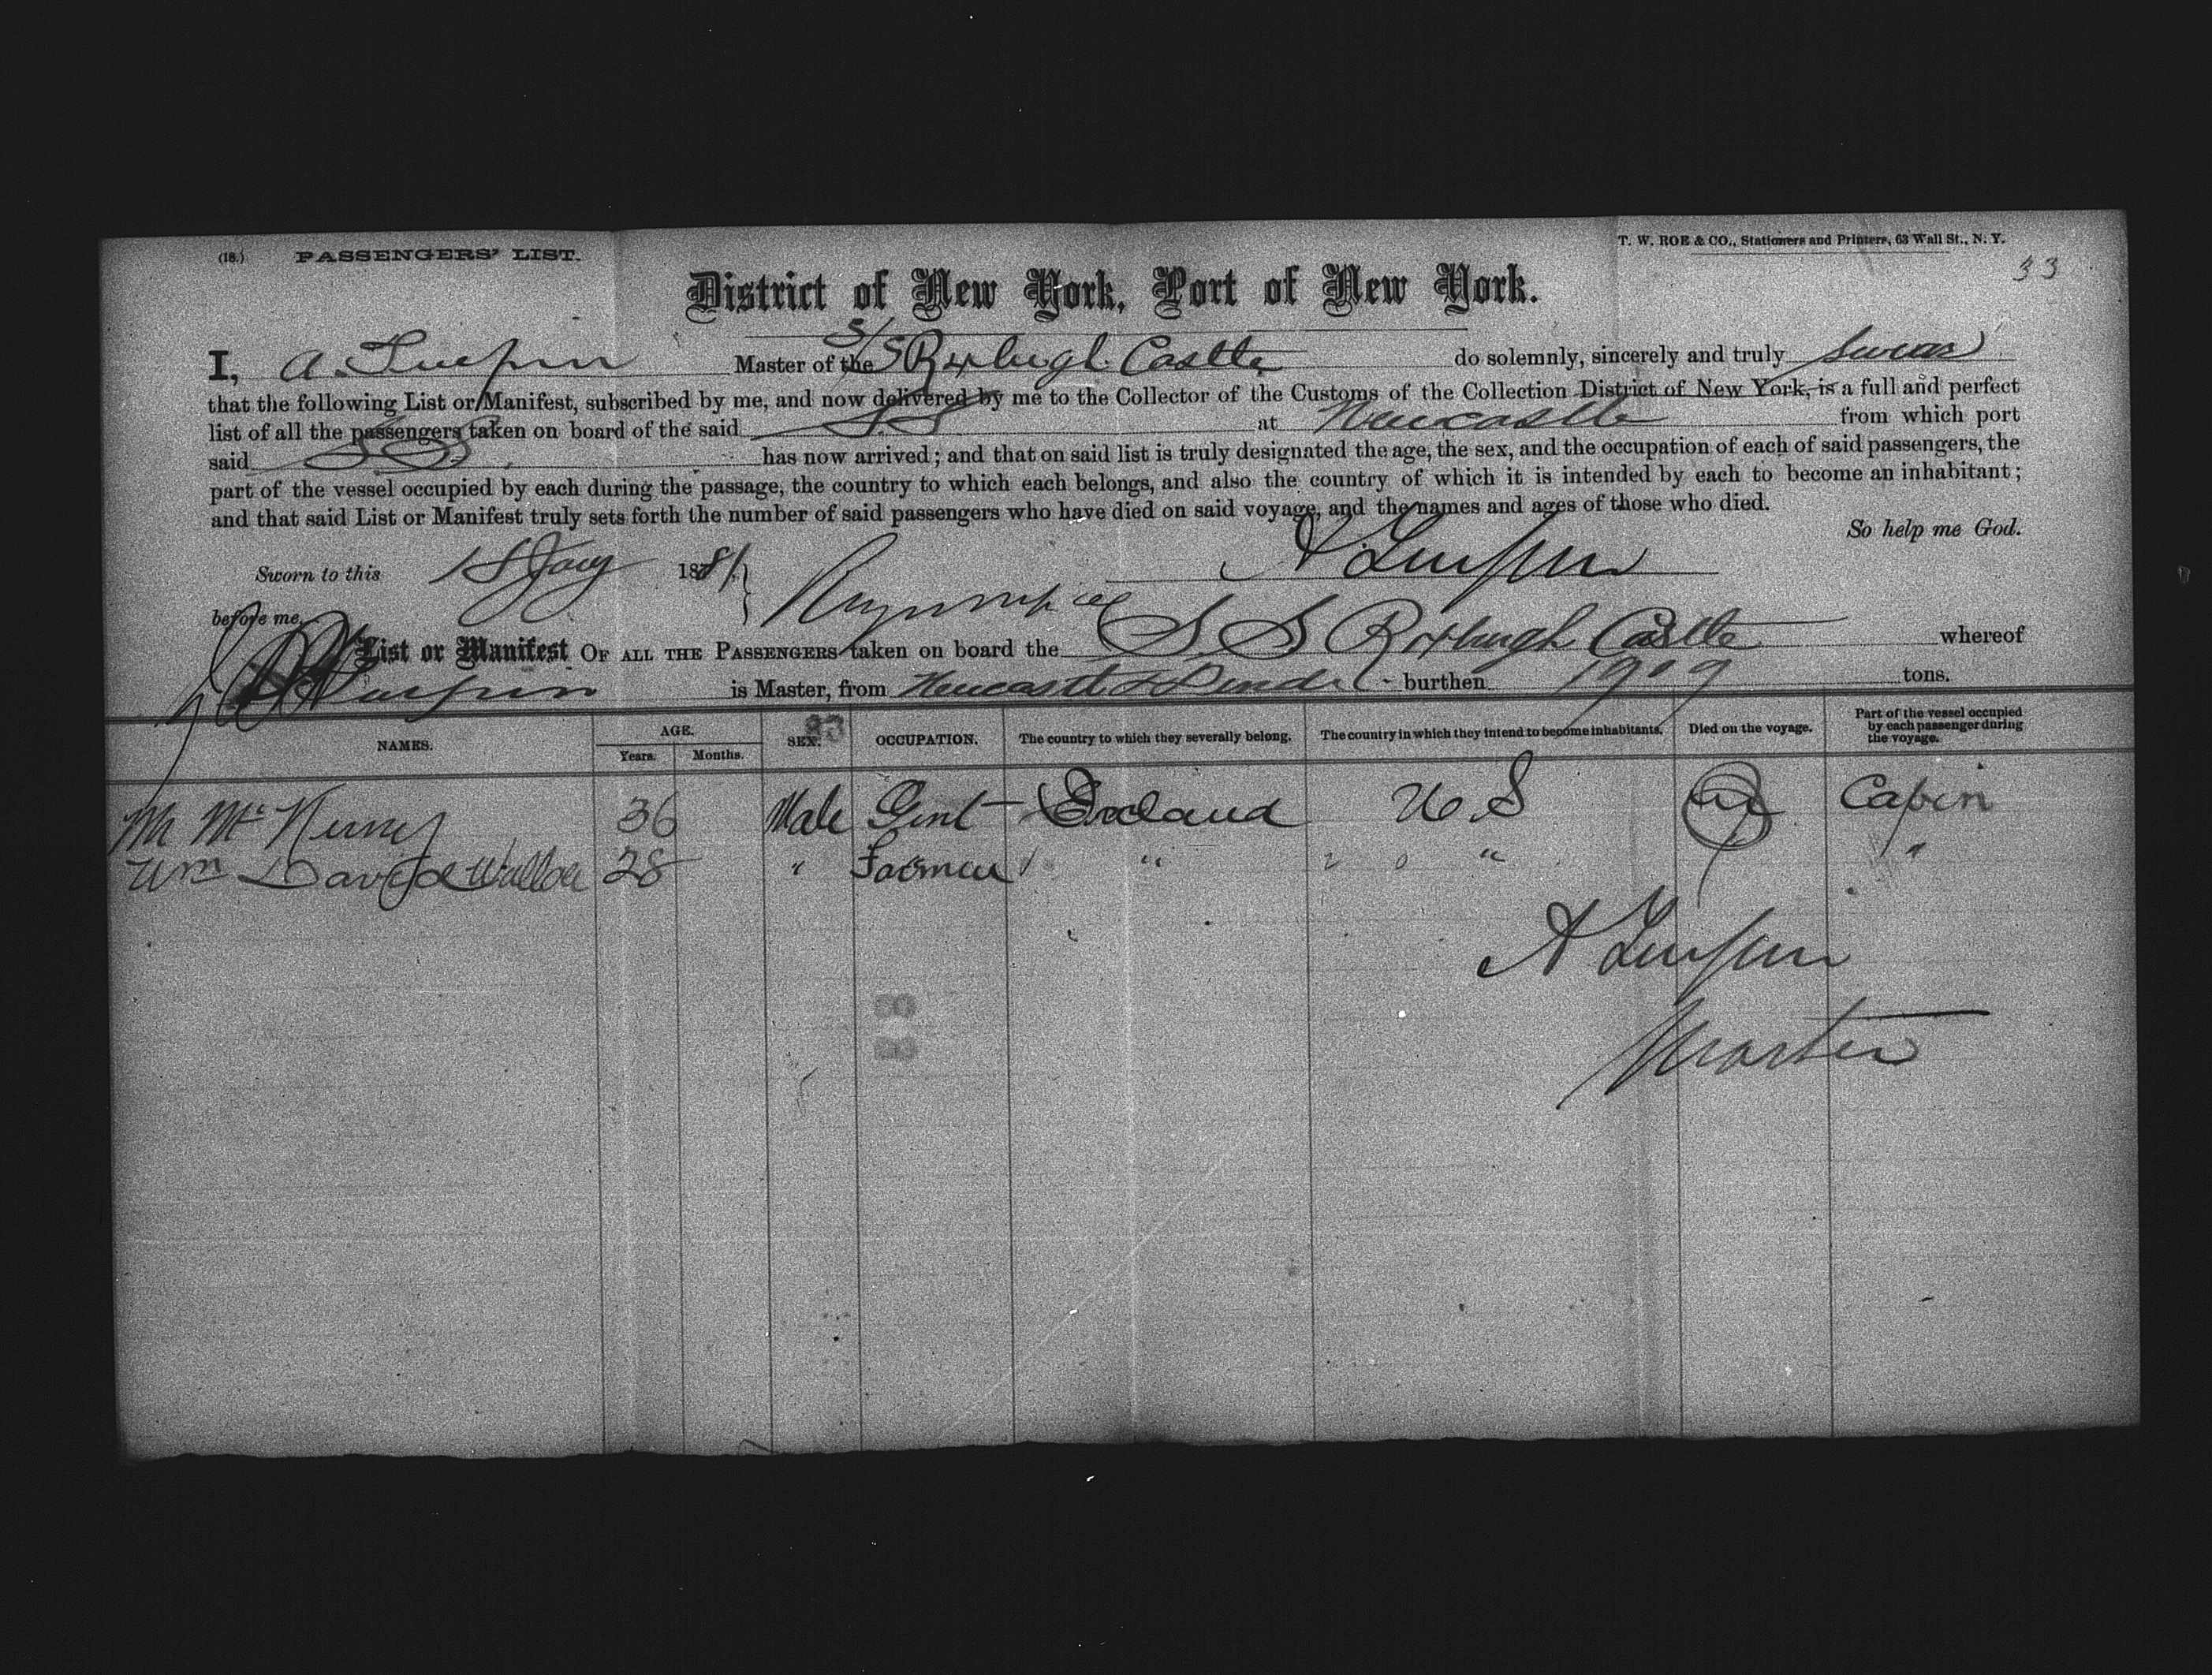 (18.) PASSENGERS' LIST.
T. W. ROE & CO., Stationers and Printers, 63 Wall St., N. Y.
33
District of New York, Port of New York.
I, A. Master of the S/S Roxburgh Castle do solemnly, sincerely and truly swear
that the following List or Manifest, subscribed by me, and now delivered by me to the Collector of the Customs of the Collection District of New York, is a full and perfect
list of all the passengers taken on board of the said SS at Newcastle from which port
said SS has now arrived; and that on said list is truly designated the age, the sex, and the occupation of each of said passengers, the
part of the vessel occupied by each during the passage, the country to which each belongs, and also the country of which it is intended by each to become an inhabitant;
and that said List or Manifest truly sets forth the number of said passengers who have died on said voyage, and the names and ages of those who died.
So help me God.
Sworn to this 18 Jany 1881
A
before me,
List or Manifest OF ALL THE PASSENGERS taken on board the S. S Roxburgh Castle whereof
is Master, from Newcastle & burthen 1909 tons.
NAMES. AGE. Years. Months. SEX. OCCUPATION. The country to which they severally belong. The country in which they intend to become inhabitants. Died on the voyage. Part of the vessel occupied by each passenger during the voyage.
33
M Mc 36 Male Gent U.S Cabin
Wm David 28 " Farmer " " "
A
Master